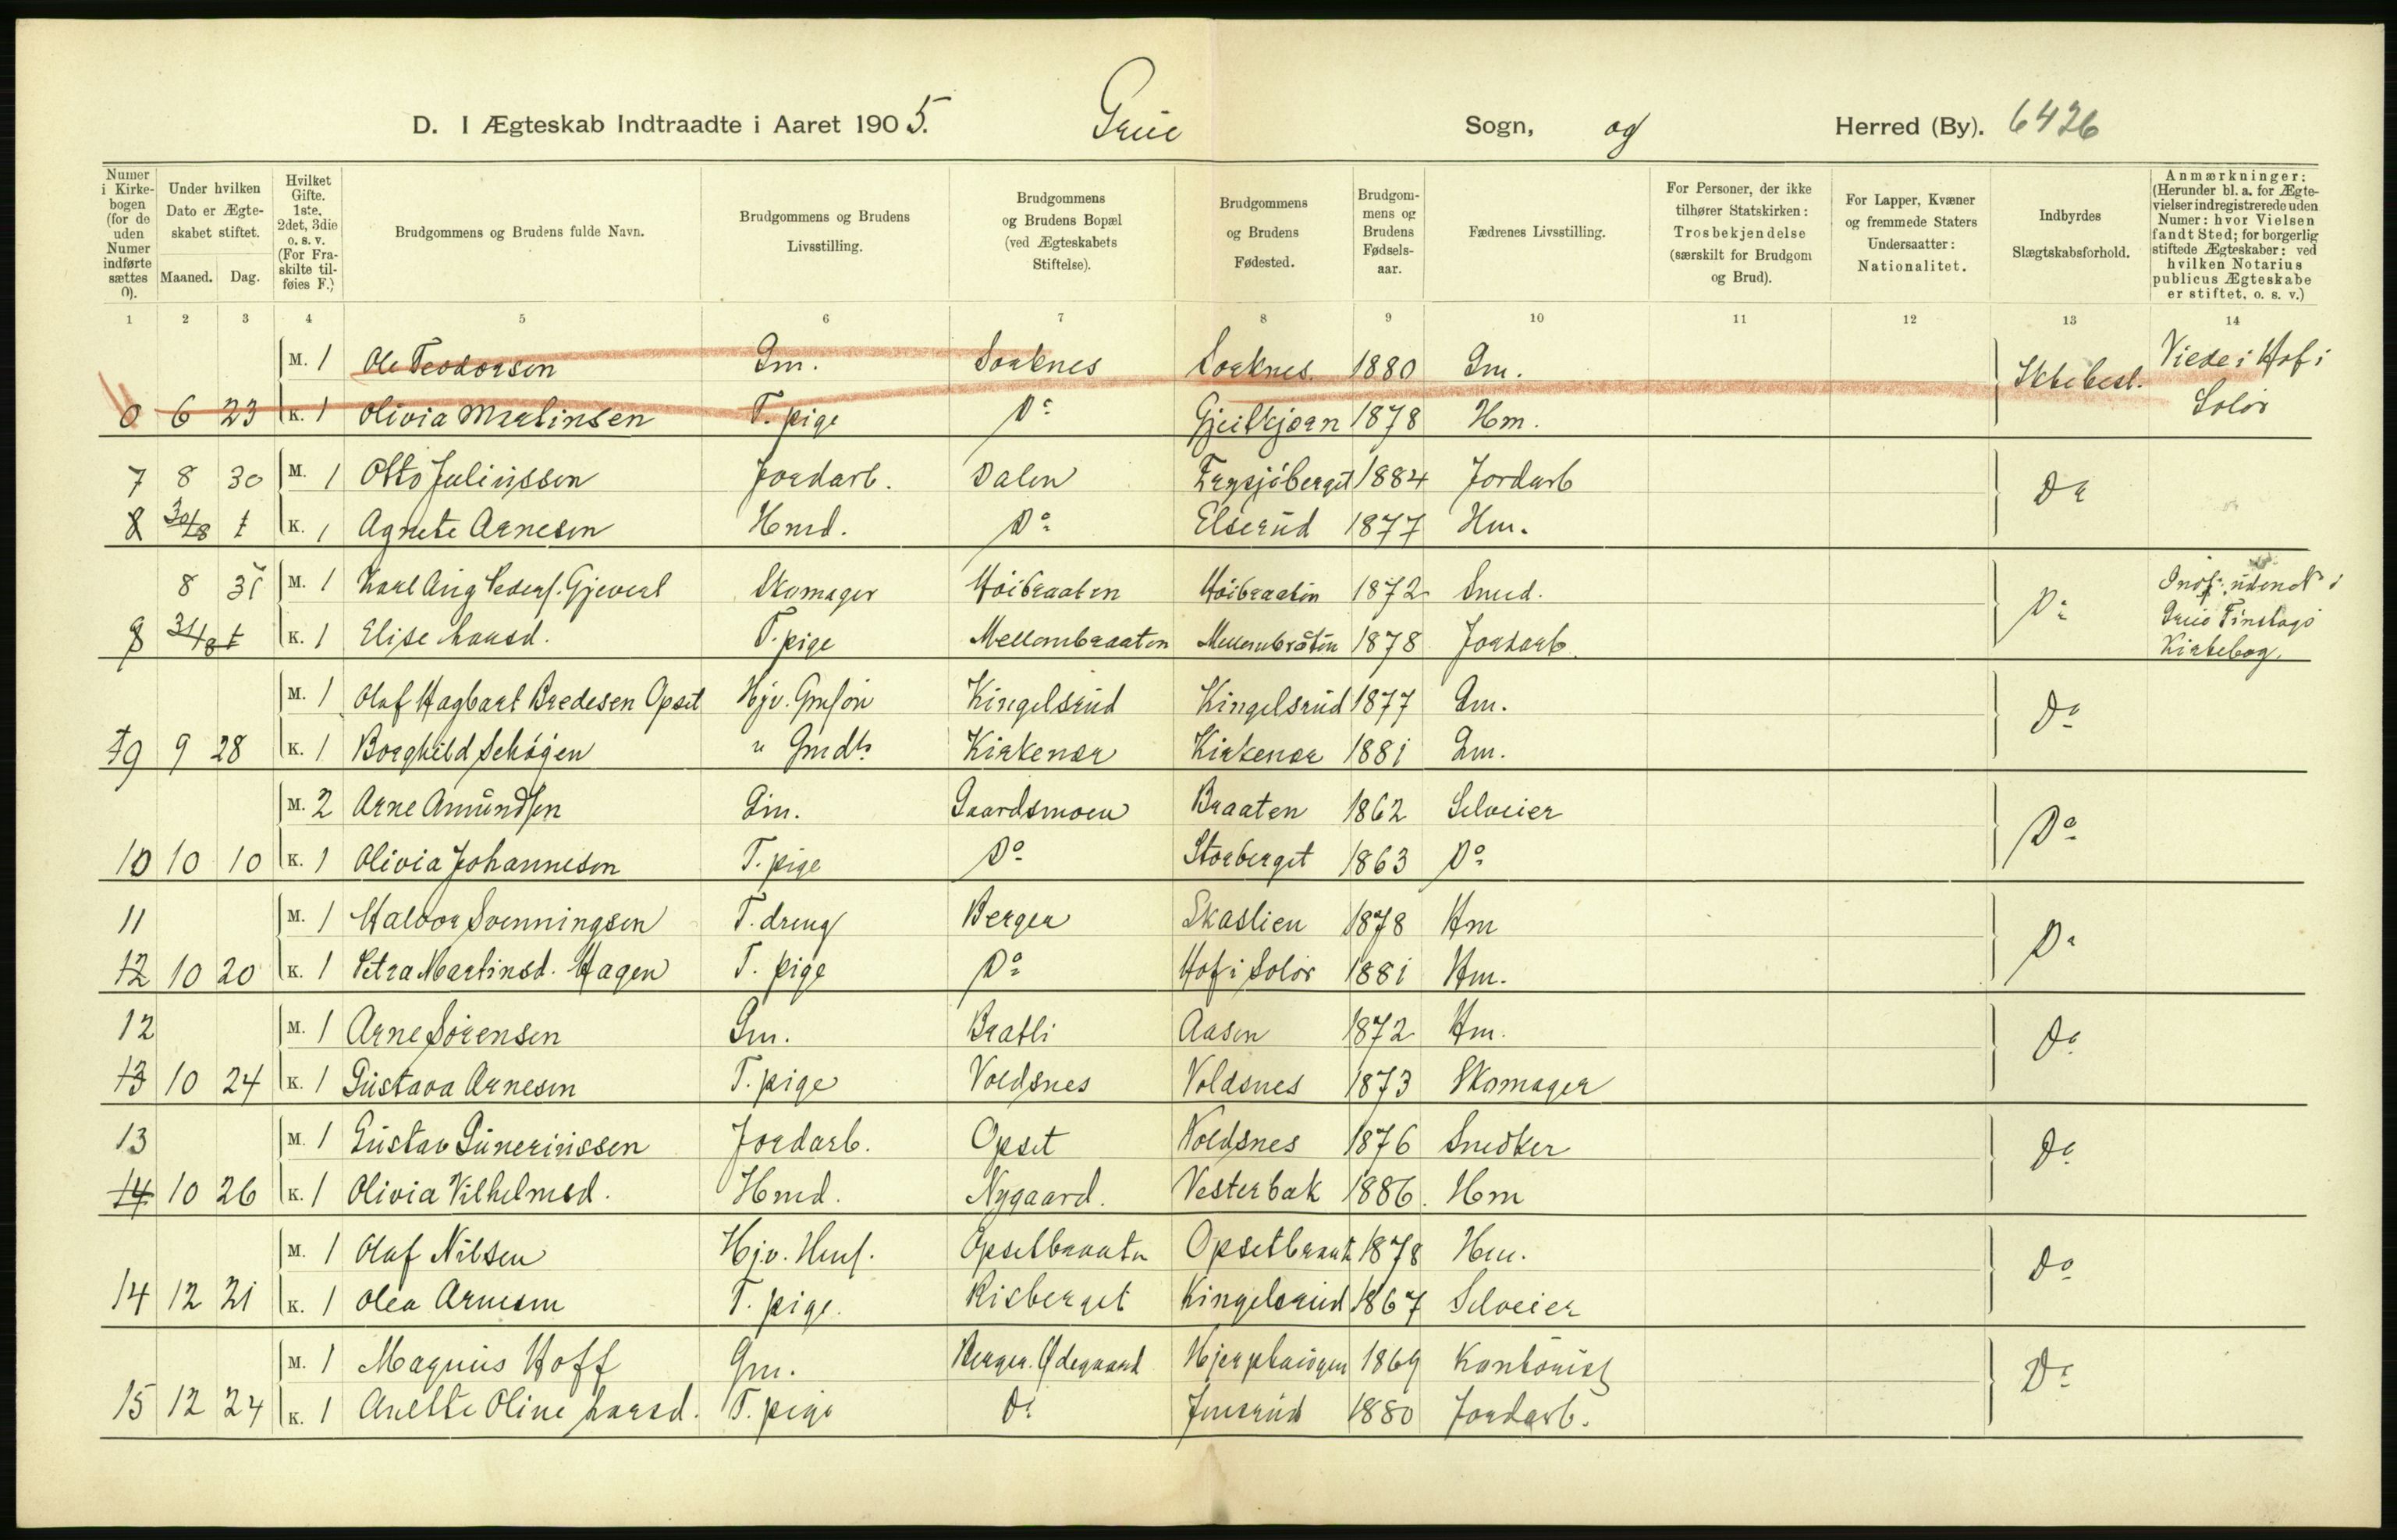 D. I Ægteskab Indtraadte i Aaret 1905. Grue Sogn, og Herred (By). 6426
Numer i Kirkebogen (for de uden Numer indførte sættes 0).
Under hvilken Dato er Ægteskabet stiftet.
Maaned. Dag.
Hvilket Gifte. 1ste, 2det, 3die o. s. v. (For Fraskilte tilføies F.)
Brudgommens og Brudens fulde Navn.
Brudgommens og Brudens Livsstilling.
Brudgommens og Brudens Bopæl (ved Ægteskabets Stiftelse).
Brudgommens og Brudens Fødested.
Brudgommens og Brudens Fødselsaar.
Fædrenes Livsstilling.
For Personer, der ikke tilhører Statskirken: Trosbekjendelse (særskilt for Brudgom og Brud).
For Lapper, Kvæner og fremmede Staters Undersaatter: Nationalitet.
Indbyrdes Slægtskabsforhold.
Anmærkninger: (Herunder bl. a. for Ægtevielser indregistrerede uden Numer: hvor Vielsen fandt Sted; for borgerlig stiftede Ægteskaber: ved hvilken Notarius publicus Ægteskabe er stiftet, o. s. v.)
1 2 3 4 5 6 7 8 9 10 11 12 13 14
M. 1 Ole Teodorsen Gm. Sorknes Sorknes 1880 Gm. Viede i Hof i
0 6 23 K. 1 Olivia Martinsen T. pige Do Gjeitkjærn 1878 Hm. Solør
7 8 30 M. 1 Otto Juliussen Jordarb. Dalen 1884 Jordarb Do
8 30/8 K. 1 Agnete Arnesen Hmd. Do Elserud 1877 Hm.
8 31 M. 1 Karl Aug Peders. Gjevert Skomager Høibraaten Høibraaten 1872 Smed. Do uden No i
8 31/8 K. 1 Elise Larsd. T. pige Mellembraaten Mellembråten 1878 Jordarb. Grue Finskogs
Kirkebog.
M. 1 Olaf Hagbart Bredesen Opset Hjv. Gmsøn Kingelsrud Kingelsrud 1877 Gm. Do
9 9 28 K. 1 Borghild Schøyen " Gmdt. Kirkenær Kirkenær 1881 Gm.
M. 2 Arne Amundsen Gm. Gaardsmoen Braaten 1862 Selveier Do
10 10 10 K. 1 Olivia Johannesen T. pige Do Storberget 1863 Do
11 M. 1 Halvor Svenningsen T. dreng Berger Skaslien 1878 Hm Do
12 10 20 K. 1 Petra Martinsd. Hagen T. pige Do Hof i Solør 1881 Hm.
12 M. 1 Arne Sørensen Gm. Bratli Aasen 1872 Hm. Do
13 10 24 K. 1 Gustava Arnesen T. pige Voldsnes Voldsnes 1873 Skomager
13 M. 1 Gustav Guneriussen Jordarb. Opset Noldsnes 1876 Snedker Do
14 10 26 K. 1 Olivia Vilhelmsd. Hmd. Nygaard. Vesterbak 1886. Hm
M. 1 Olaf Nilsen Hjv. Hms. Opsetbraaten Opsetbraat 1878 Hm. Do
14 12 21 K. 1 Olea Arnesen T. pige. Risberget Kingelsrud 1867 Selveier
M. 1 Magnus Hoff Gm. Berger. Ødegaard 1869 Kontorist Do
15 12 24 K. 1 Anette Oline Larsd. T. pige Do 1880 Jordarb.